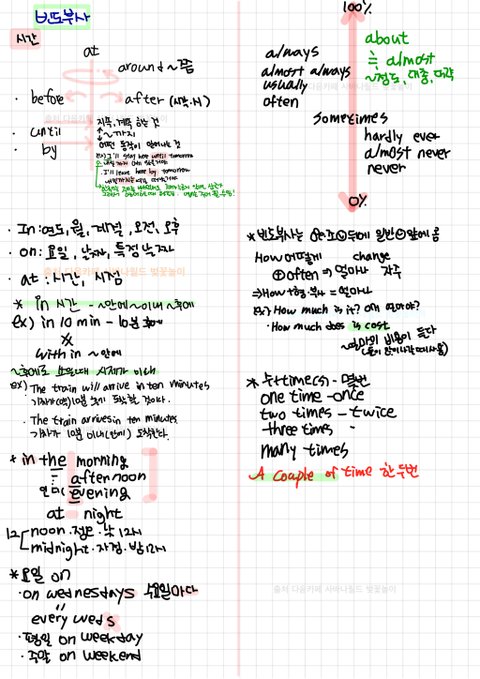 빈도부사
시간
at
around ~쯤
· before after (시각·시)
지속, 계속 하는 것
· until ~까지
· by 어떤 동작이 일어나는 것
ex) I'll stay here until tomorrow
I'll leave here by tomorrow
· In : 연도, 월, 계절, 오전, 오후
· on : 요일, 날짜, 특정 날짜
· at : 시간, 시점
* in 시간 - ~안에 ~이내 ~후에
ex) in 10 min - 10분 후에
within ~안에
~후에로 쓰일 때 시제가 미래
ex) The train will arrive in ten minutes
· The train arrives in ten minutes
+ in the morning
afternoon
evening
at night
12 noon · 정오 · 낮 12시
midnight · 자정 · 밤 12시
* 요일 on
· on wednesdays 수요일마다
every weds
· 평일 on weekday
· 주말 on weekend
100%
always
almost always
usually
often
sometimes
hardly ever
almost never
never
0%
about
≒ almost
~정도, 대충, 대략
How 어떻게 change
+ often ⇒ 얼마나 자주
⇒ How + 형·부사 = 얼마나
ex) How much is it? 이거 얼마야?
· How much does is cost
~얼마의 비용이 들다
* 수+time(s) - 몇번
one time - once
two times - twice
three times
many times
A couple of time 한두번
출처 다음카페 사바나월드 벚꽃놀이